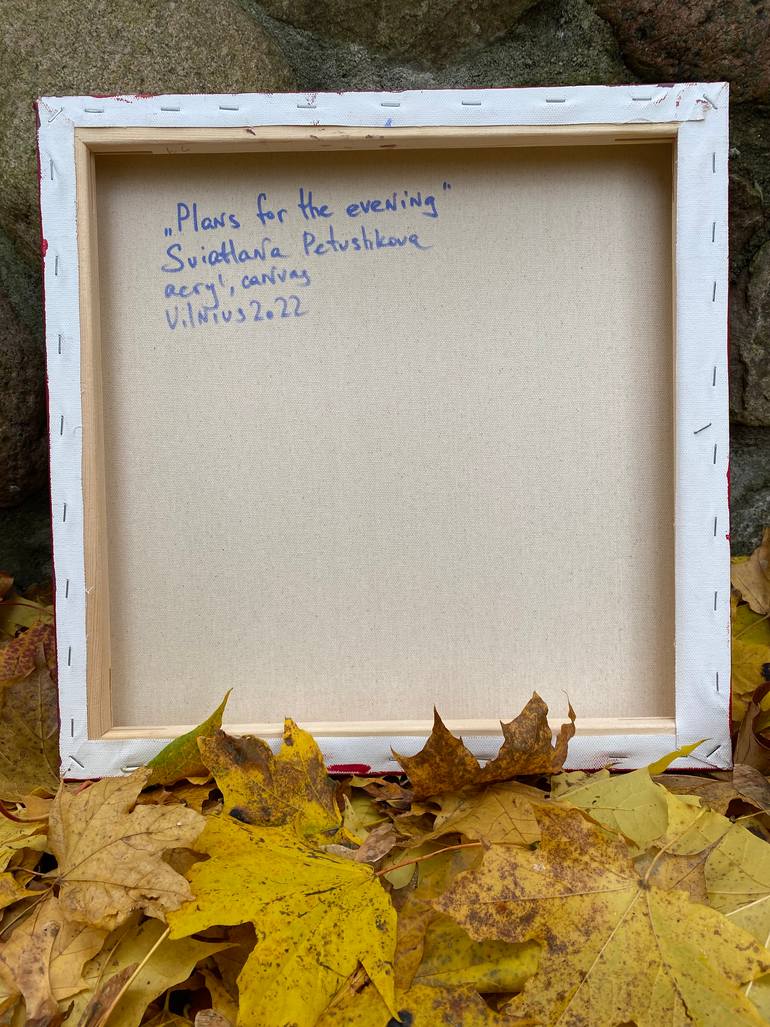 „Plans for the evening"
Sviatlana Petushkova
acryl, canvas
Vilnius 2022